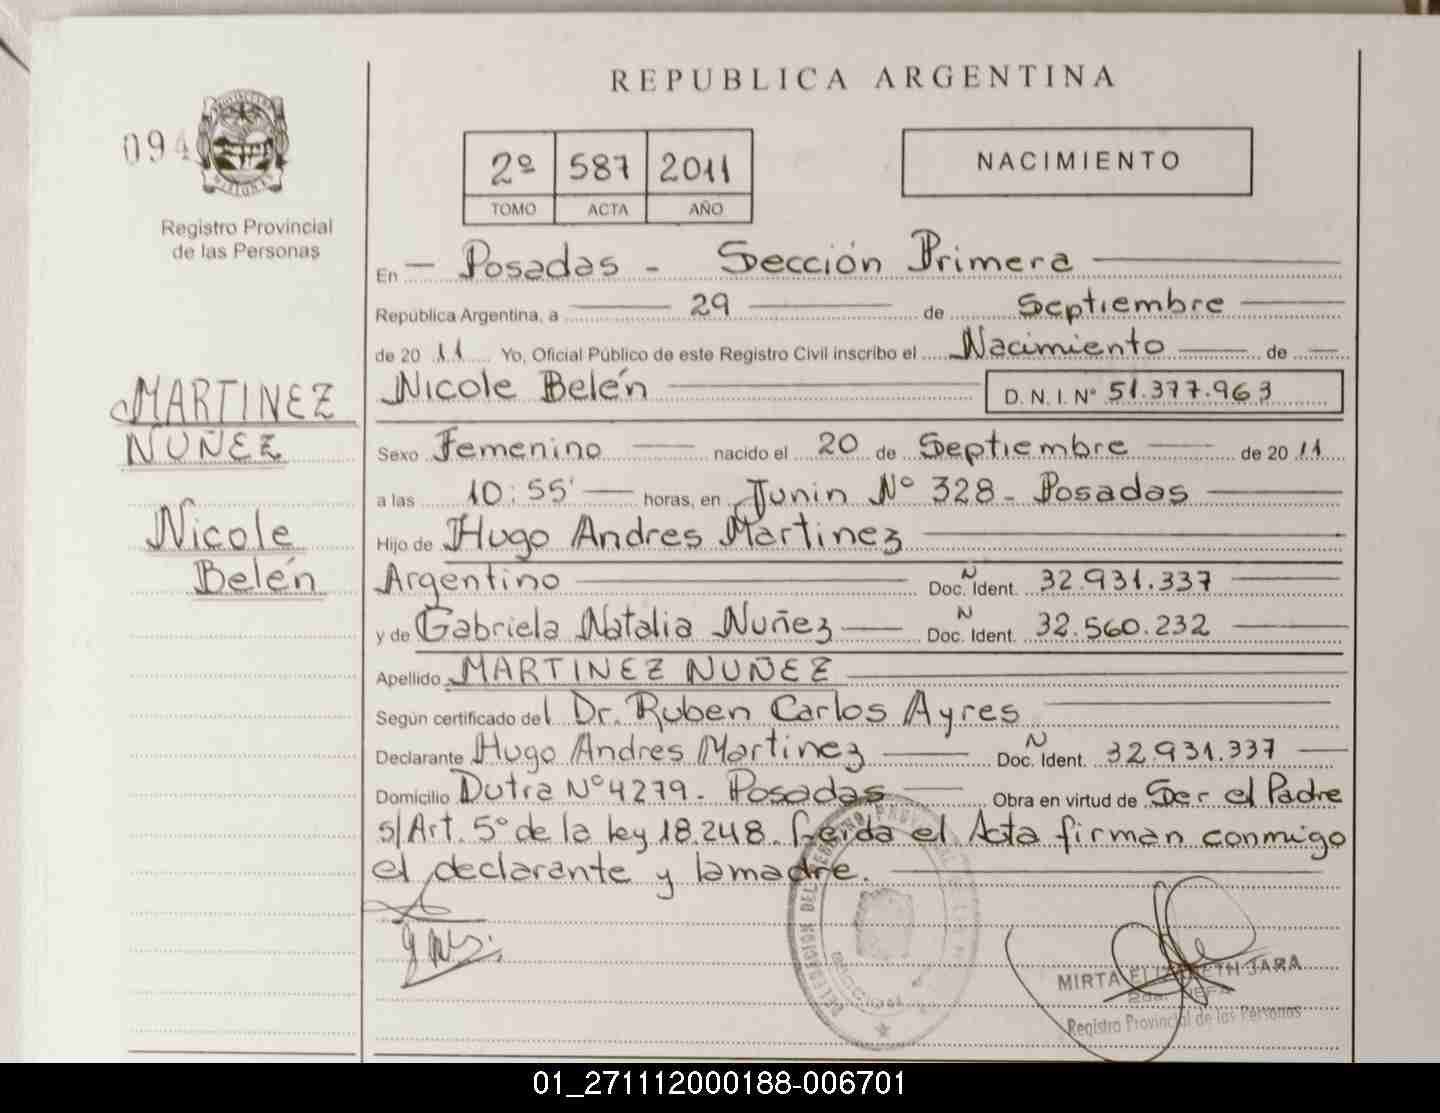 REPUBLICA ARGENTINA
094
Registro Provincial
de las Personas
2º 587 2011
TOMO ACTA AÑO
NACIMIENTO
En Posadas - Sección Primera
República Argentina, a 29 de Septiembre
de 20 11 Yo, Oficial Público de este Registro Civil inscribo el Nacimiento de
Nicole Belén D.N.I. Nº 51.377.963
MARTINEZ
NUÑEZ
Nicole
Belén
Sexo Femenino nacido el 20 de Septiembre de 20 11
a las 10:55' horas, en Junin Nº 328 - Posadas
Hijo de Hugo Andres Martinez
Argentino Doc. N Ident. 32.931.337
y de Gabriela Natalia Nuñez Doc. N Ident. 32.560.232
Apellido MARTINEZ NUÑEZ
Según certificado del Dr. Ruben Carlos Ayres
Declarante Hugo Andres Martinez Doc. N Ident. 32.931.337
Domicilio Dutra Nº 4279 - Posadas Obra en virtud de Ser el Padre
s/Art. 5º de la ley 18.248. Leida el Acta firman conmigo
el declarante y la madre.
MIRTA ELIZABETH JARA
Registro Provincial de las Personas
01_271112000188-006701